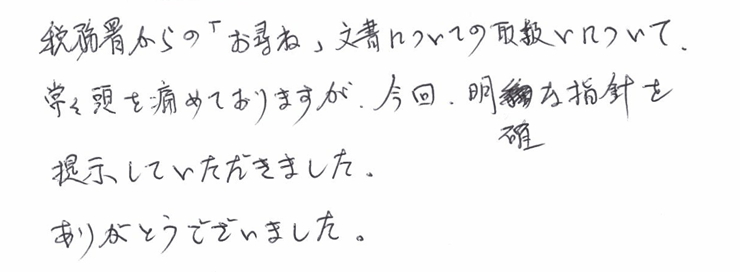 税務署からの「お尋ね」文書についての取扱いについて、
常々頭を痛めておりますが、今回、明確な指針を
提示していただきました。
ありがとうございました。